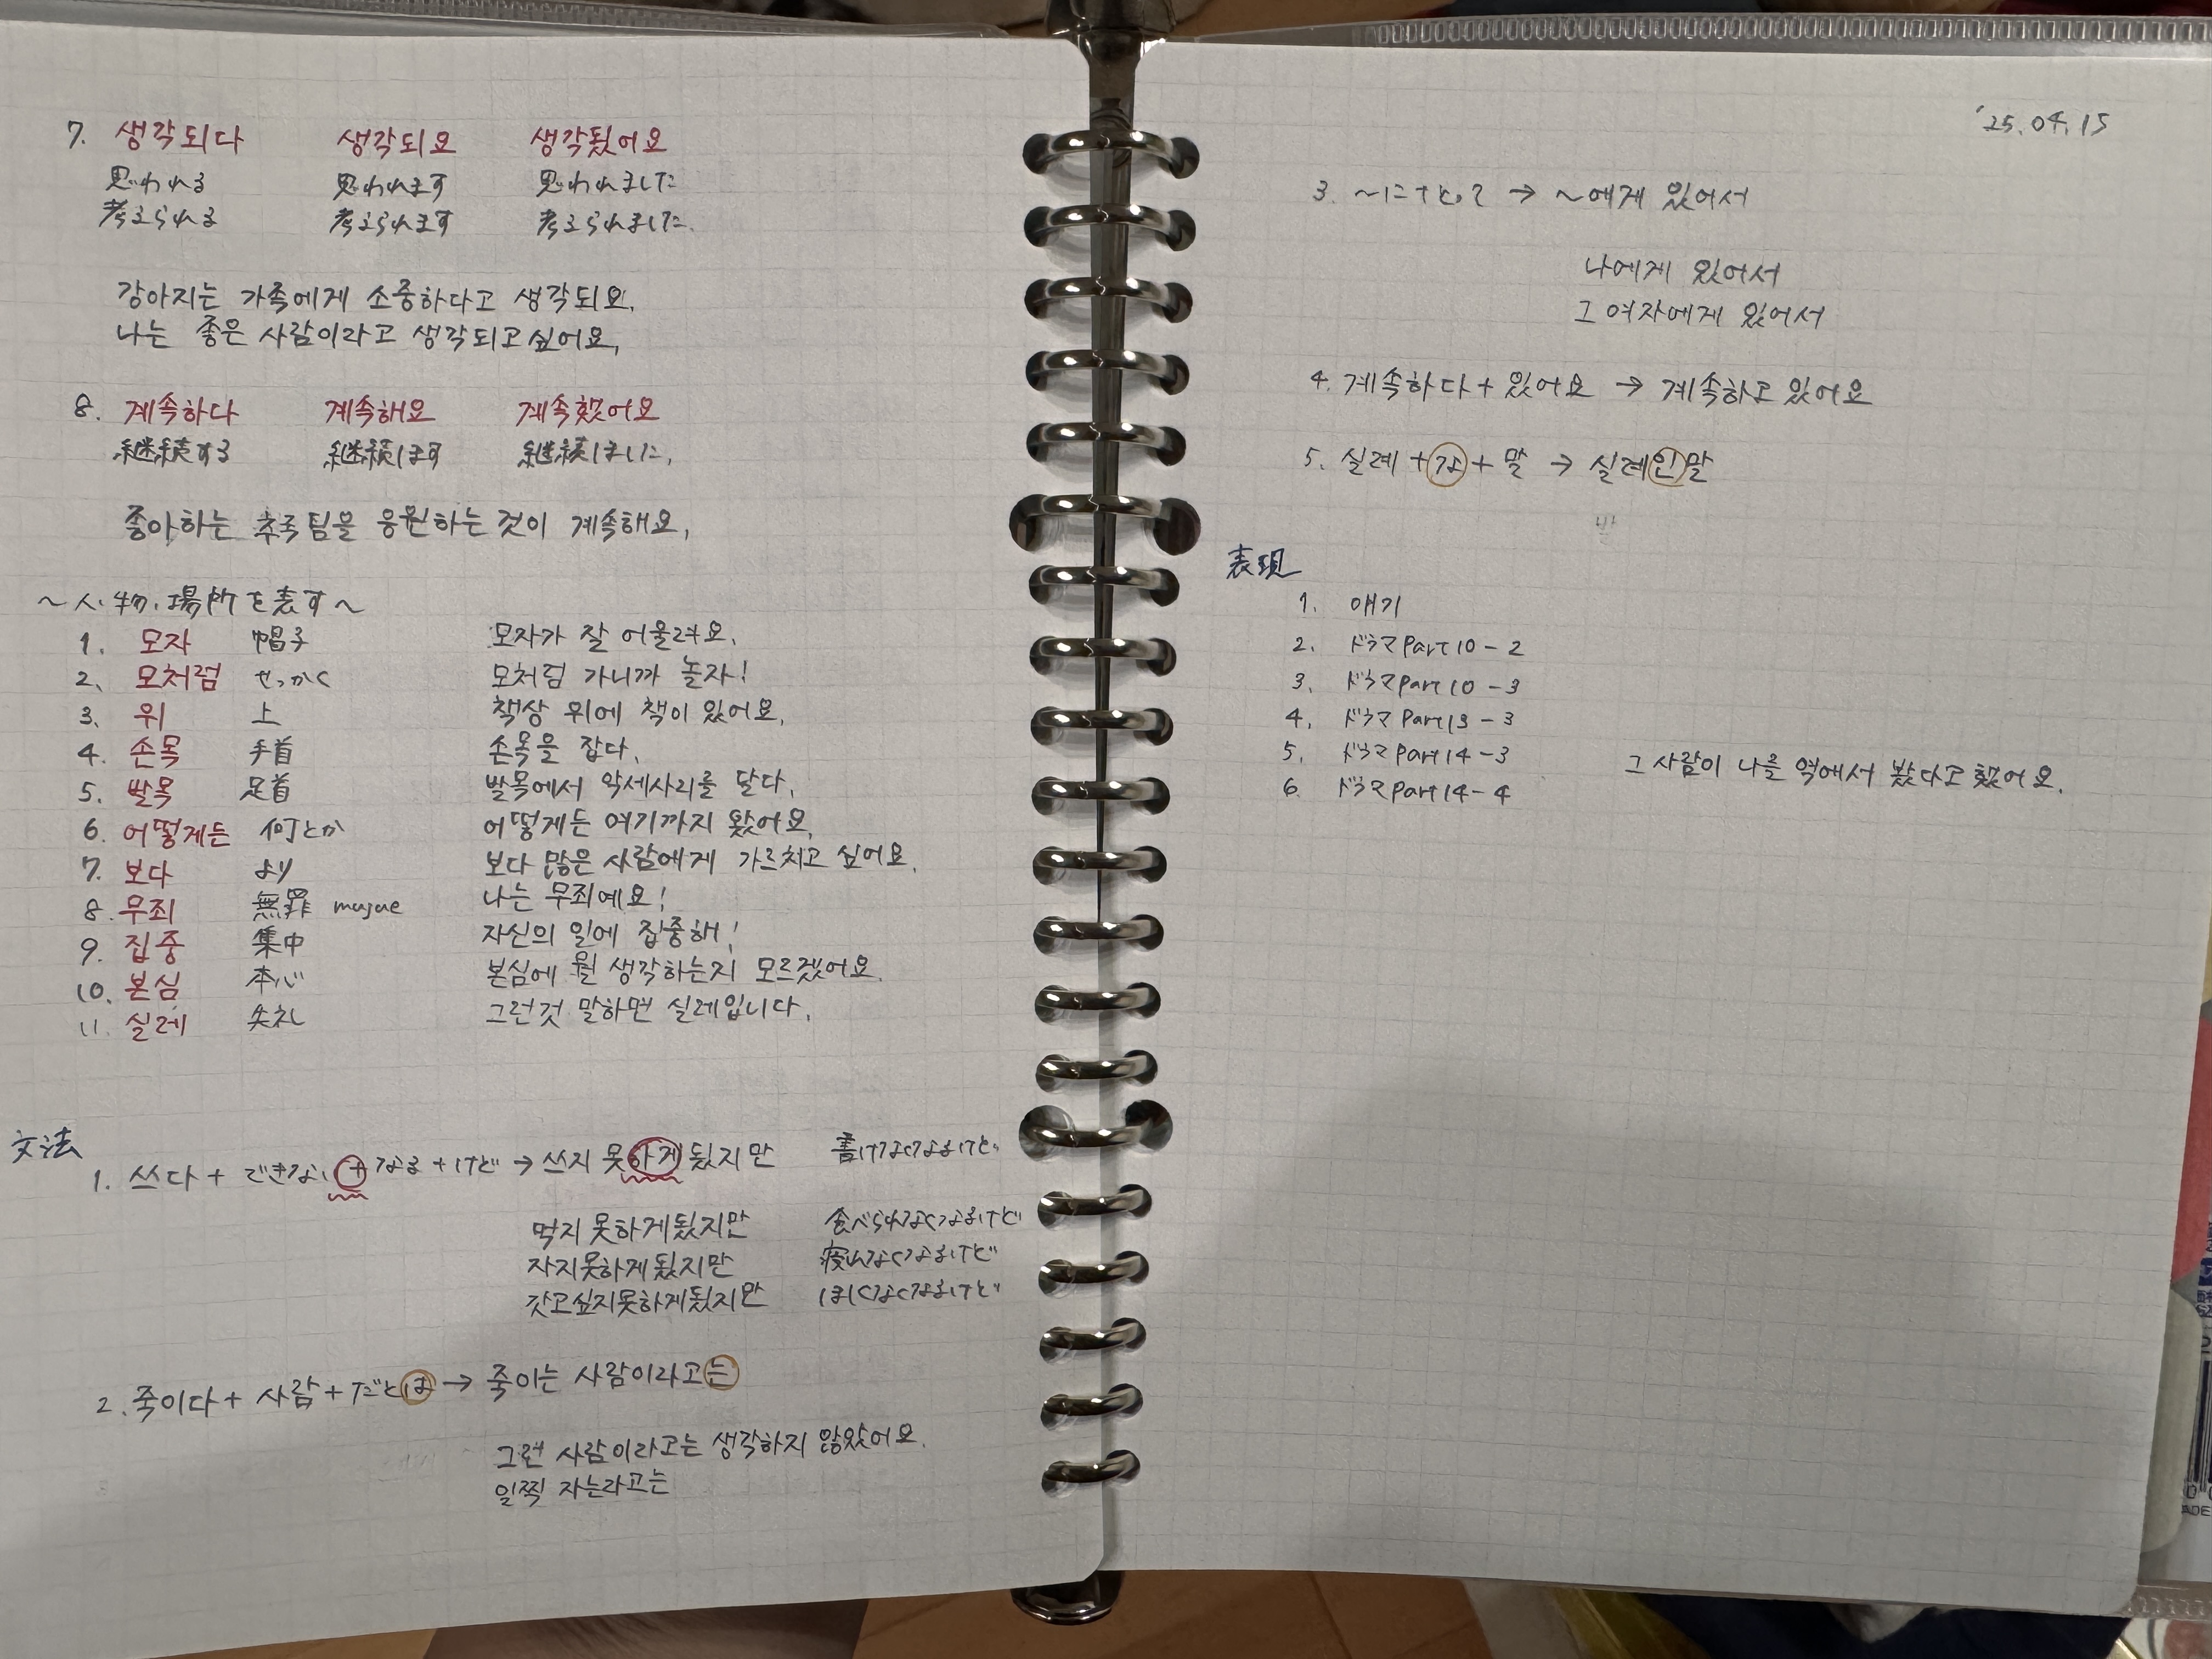 7. 생각되다 생각되요 생각됬어요
思われる 思われます 思われました
考えられる 考えられます 考えられました.
강아지는 가족에게 소중하다고 생각되요.
나는 좋은 사람이라고 생각되고싶어요.
8. 계속하다 계속해요 계속했어요
継続する 継続します 継続しました.
좋아하는 축구팀을 응원하는 것이 계속해요.
～人.物.場所を表す～
1. 모자 帽子 모자가 잘 어울려요.
2. 모처럼 せっかく 모처럼 가니까 놀자!
3. 위 上 책상 위에 책이 있어요.
4. 손목 手首 손목을 잡다.
5. 발목 足首 발목에서 악세사리를 달다.
6. 어떻게든 何とか 어떻게든 여기까지 왔어요.
7. 보다 より 보다 많은 사람에게 가르치고 싶어요.
8. 무죄 無罪 mujue 나는 무죄예요!
9. 집중 集中 자신의 일에 집중해!
10. 본심 本心 본심에 뭘 생각하는지 모르겠어요.
11. 실례 失礼 그런것 말하면 실례입니다.
文法
1. 쓰다 + できない + なる + けど → 쓰지 못하게 됬지만 書けなくなるけど.
먹지 못하게됬지만 食べられなくなるけど
자지못하게됬지만 寝れなくなるけど
갖고싶지못하게됬지만 ほしくなくなるけど
2. 죽이다 + 사람 + だとは → 죽이는 사람이라고는
그런 사람이라고는 생각하지 않았어요.
일찍 자는라고는
'25.04.15
3. ～にとって → ～에게 있어서
나에게 있어서
그 여자에게 있어서
4. 계속하다 + 있어요 → 계속하고 있어요
5. 실례 + な + 말 → 실례인말
表現
1. 얘기
2. ドラマ Part 10 - 2
3. ドラマ Part 10 - 3
4. ドラマ Part 13 - 3
5. ドラマ Part 14 - 3 그 사람이 나를 역에서 봤다고 했어요.
6. ドラマ Part 14 - 4